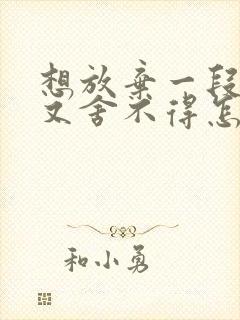 想放弃一段
又舍不得怎
和小勇